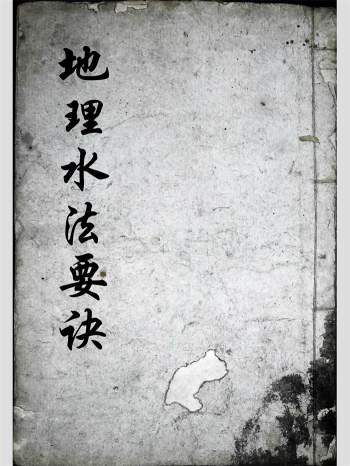 地理水法要诀